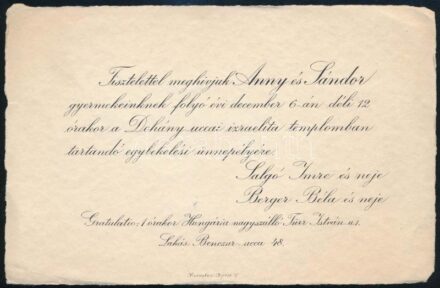 Tisztelettel meghívjuk Anny és Sándor
gyermekeinknek folyó évi december 6-án déli 12
órakor a Dohány uccai izraelita templomban
tartandó egybekelési ünnepélyére.
Salgó Imre és neje
Berger Béla és neje
Gratulatio: 1 órakor Hungária nagyszálló Türr István u.1.
Lakás: Benczur ucca 48.